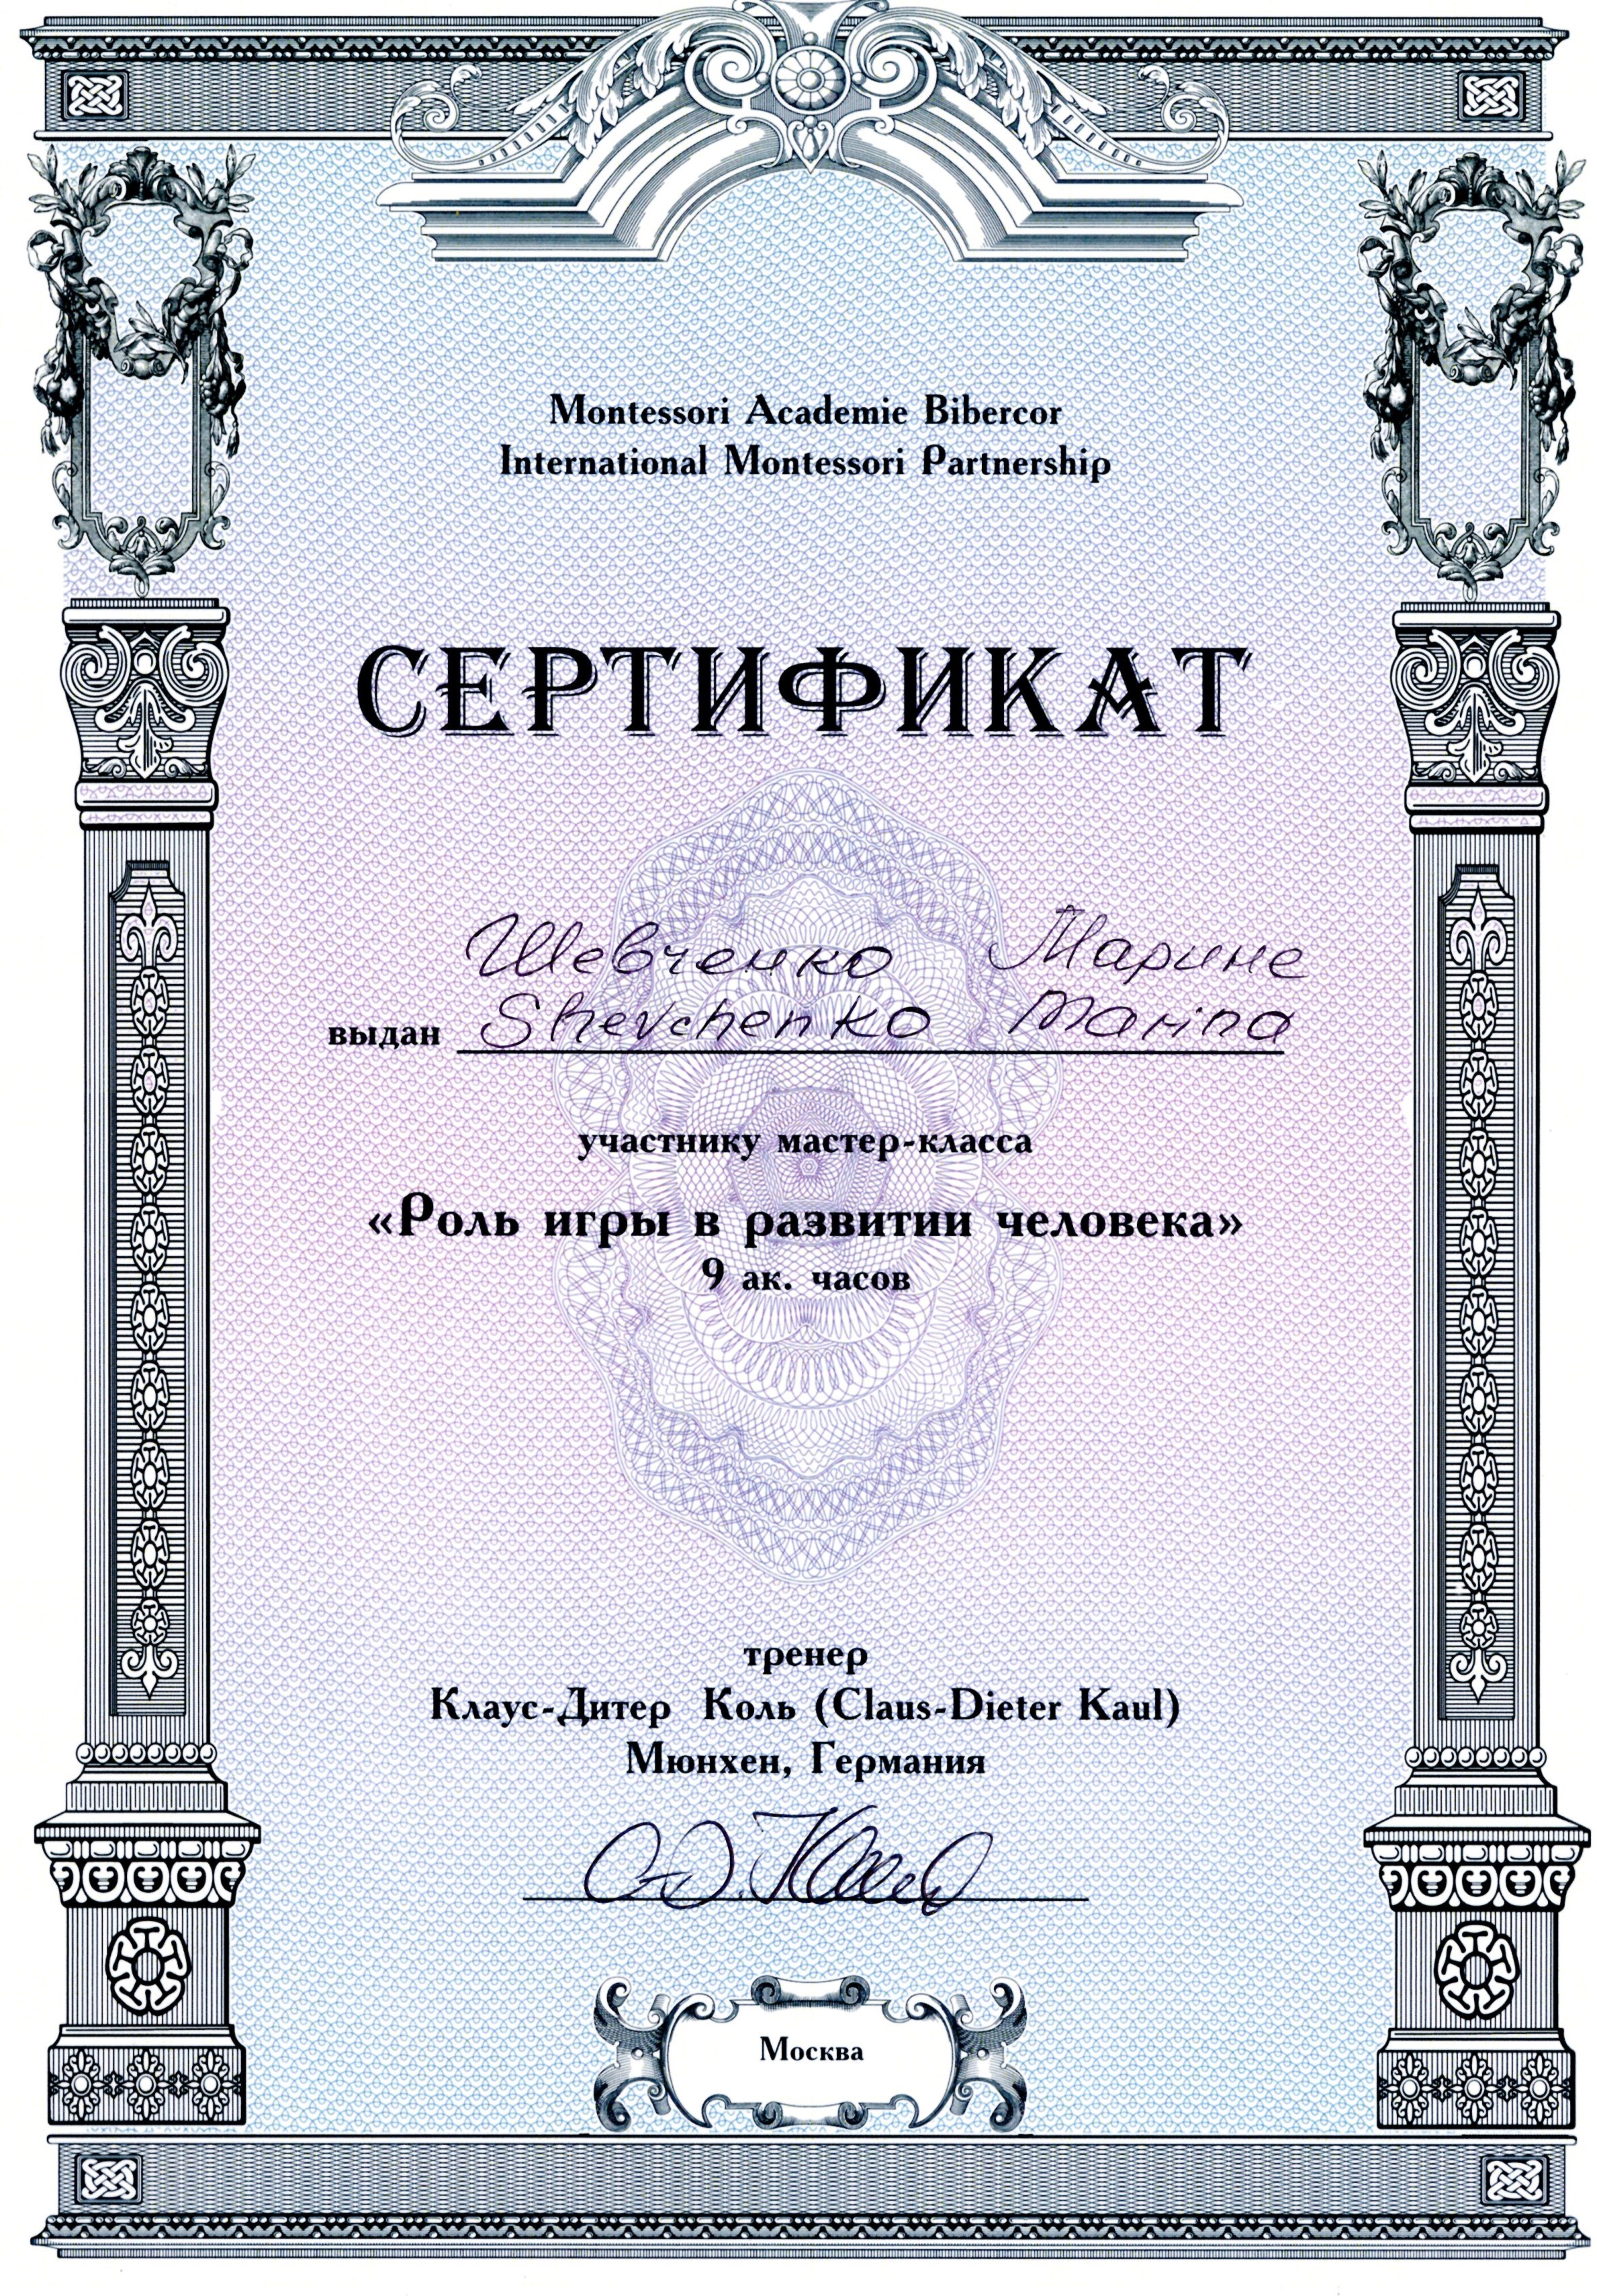 Montessori Academie Bibercor
International Montessori Partnership
СЕРТИФИКАТ
Шевченко Марине
выдан Shevchenko Marina
участнику мастер-класса
«Роль игры в развитии человека»
9 ак. часов
тренер
Клаус-Дитер Коль (Claus-Dieter Kaul)
Мюнхен, Германия
Москва